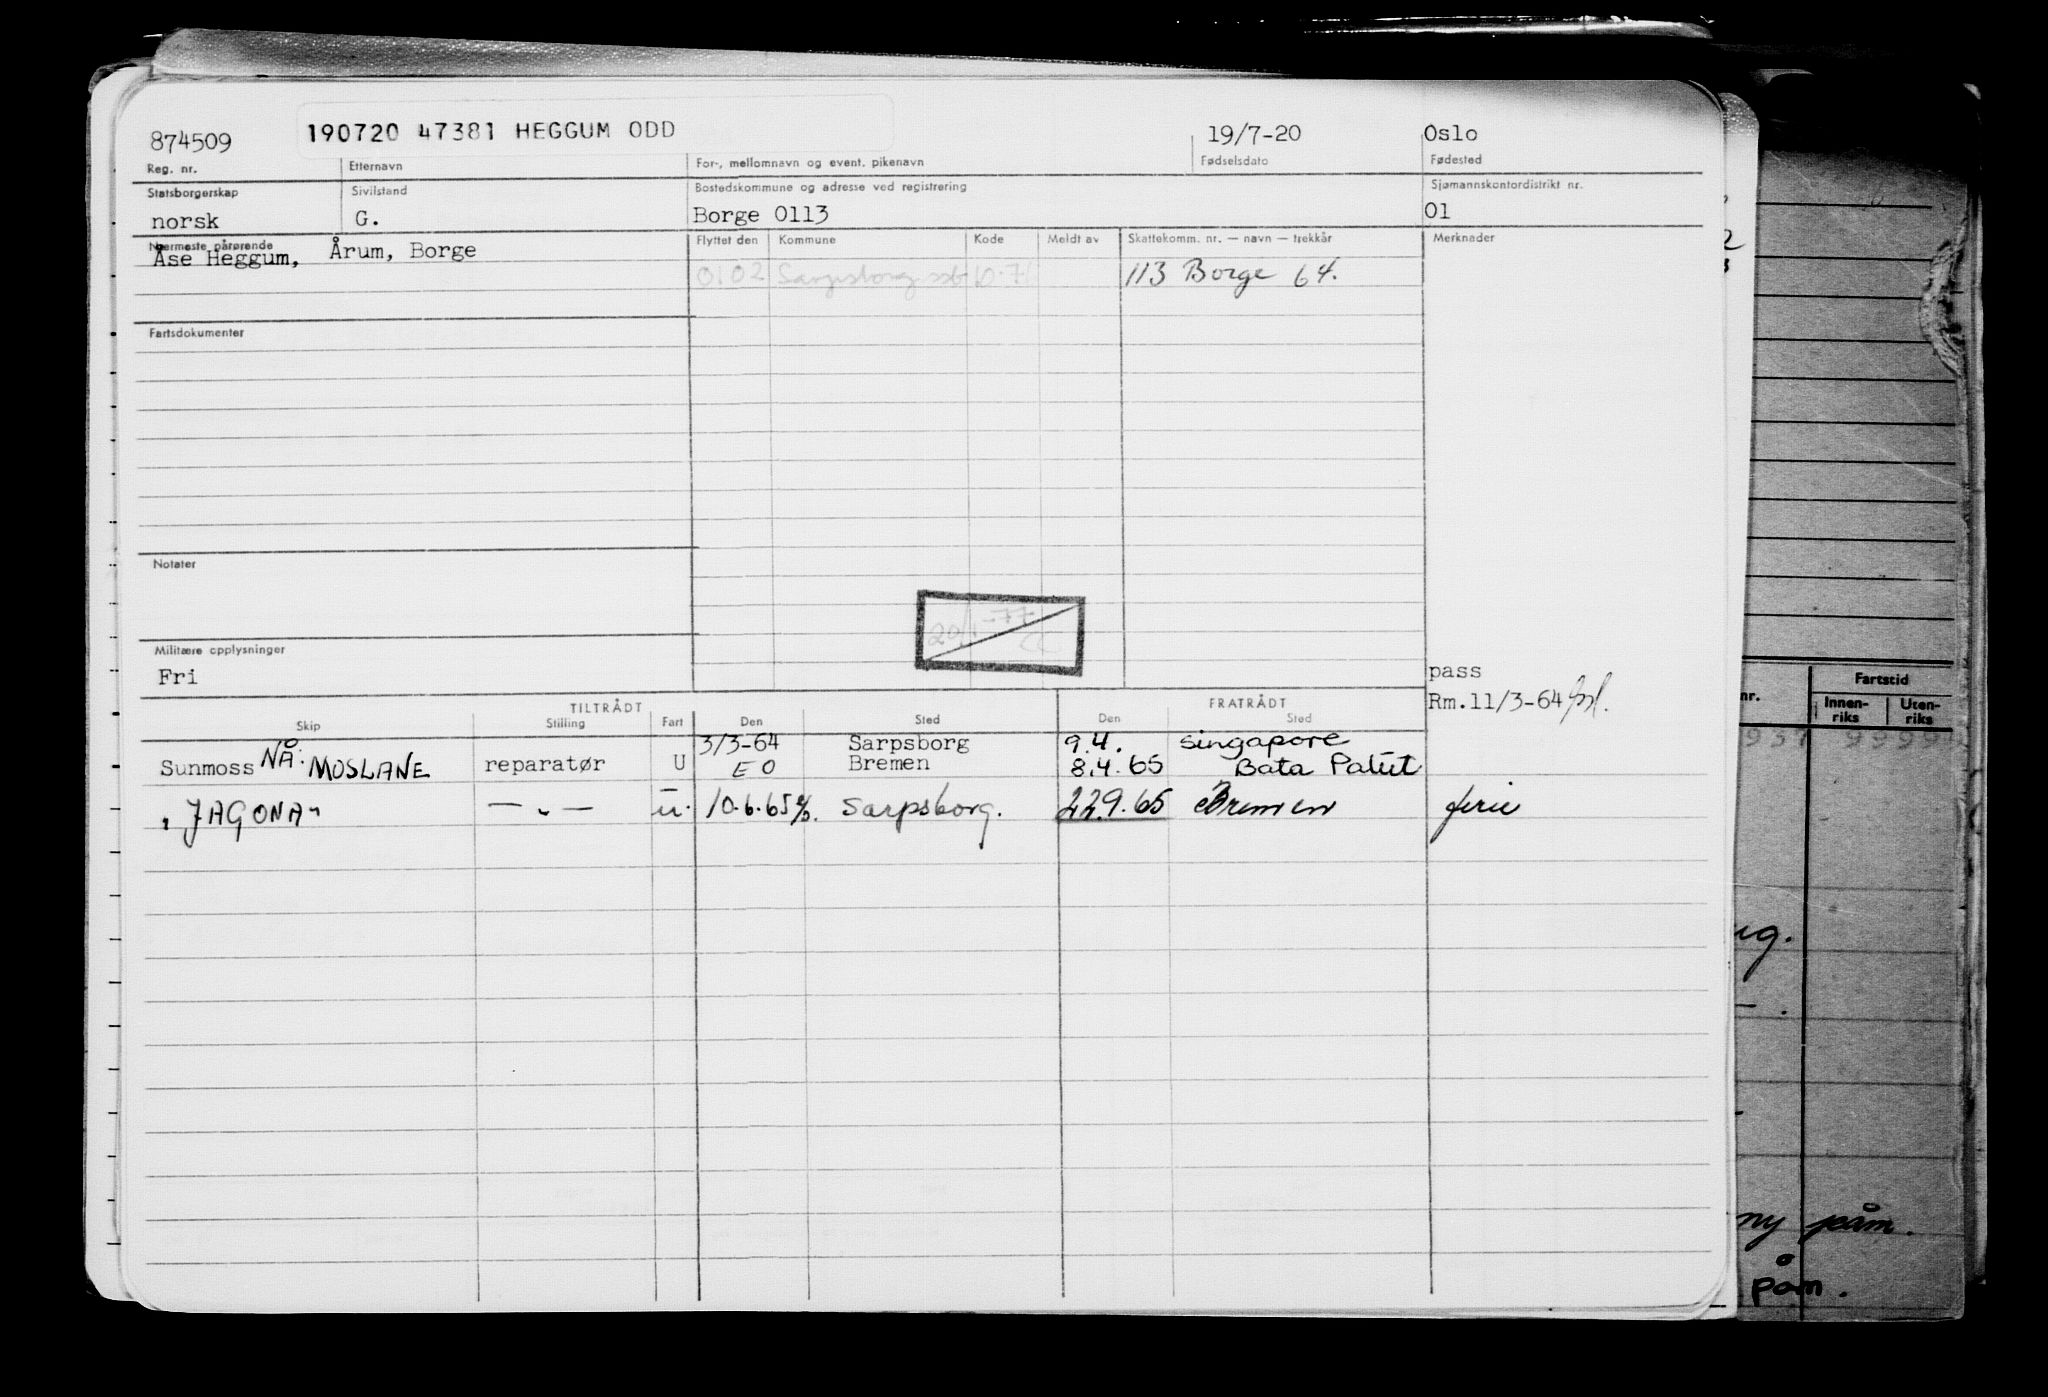 874509 190720 47381 HEGGUM ODD 19/7-20 Oslo
Reg. nr. Etternavn For-, mellomnavn og event. pikenavn Fødselsdato Fødested
Statsborgerskap Sivilstand Bostedskommune og adresse ved registrering Sjømannskontordistrikt nr.
norsk G. Borge 0113 01
Nærmeste pårørende Flyttet den Kommune Kode Meldt av Skattekomm. nr. — navn — trekkår Merknader
Åse Heggum, Årum, Borge
0102 Sarpsborg 10.76 113 Borge 64.
Fartsdokumenter
Notater
20/1-77
Militære opplysninger
Fri pass
Rm.11/3-64
TILTRÅDT FRATRÅDT
Skip Stilling Fart Den Sted Den Sted
3/3-64 Sarpsborg 9.4. Singapore
Sunmoss NÅ: MOSLANE reparatør U EO Bremen 8.4.65 Bata
"JAGONA" — " — u. 10.6.65 Sarpsborg. 22.9.65 Bremen ferie
nr. Fartstid
Innen-riks Uten-riks
ny påm.
påm.